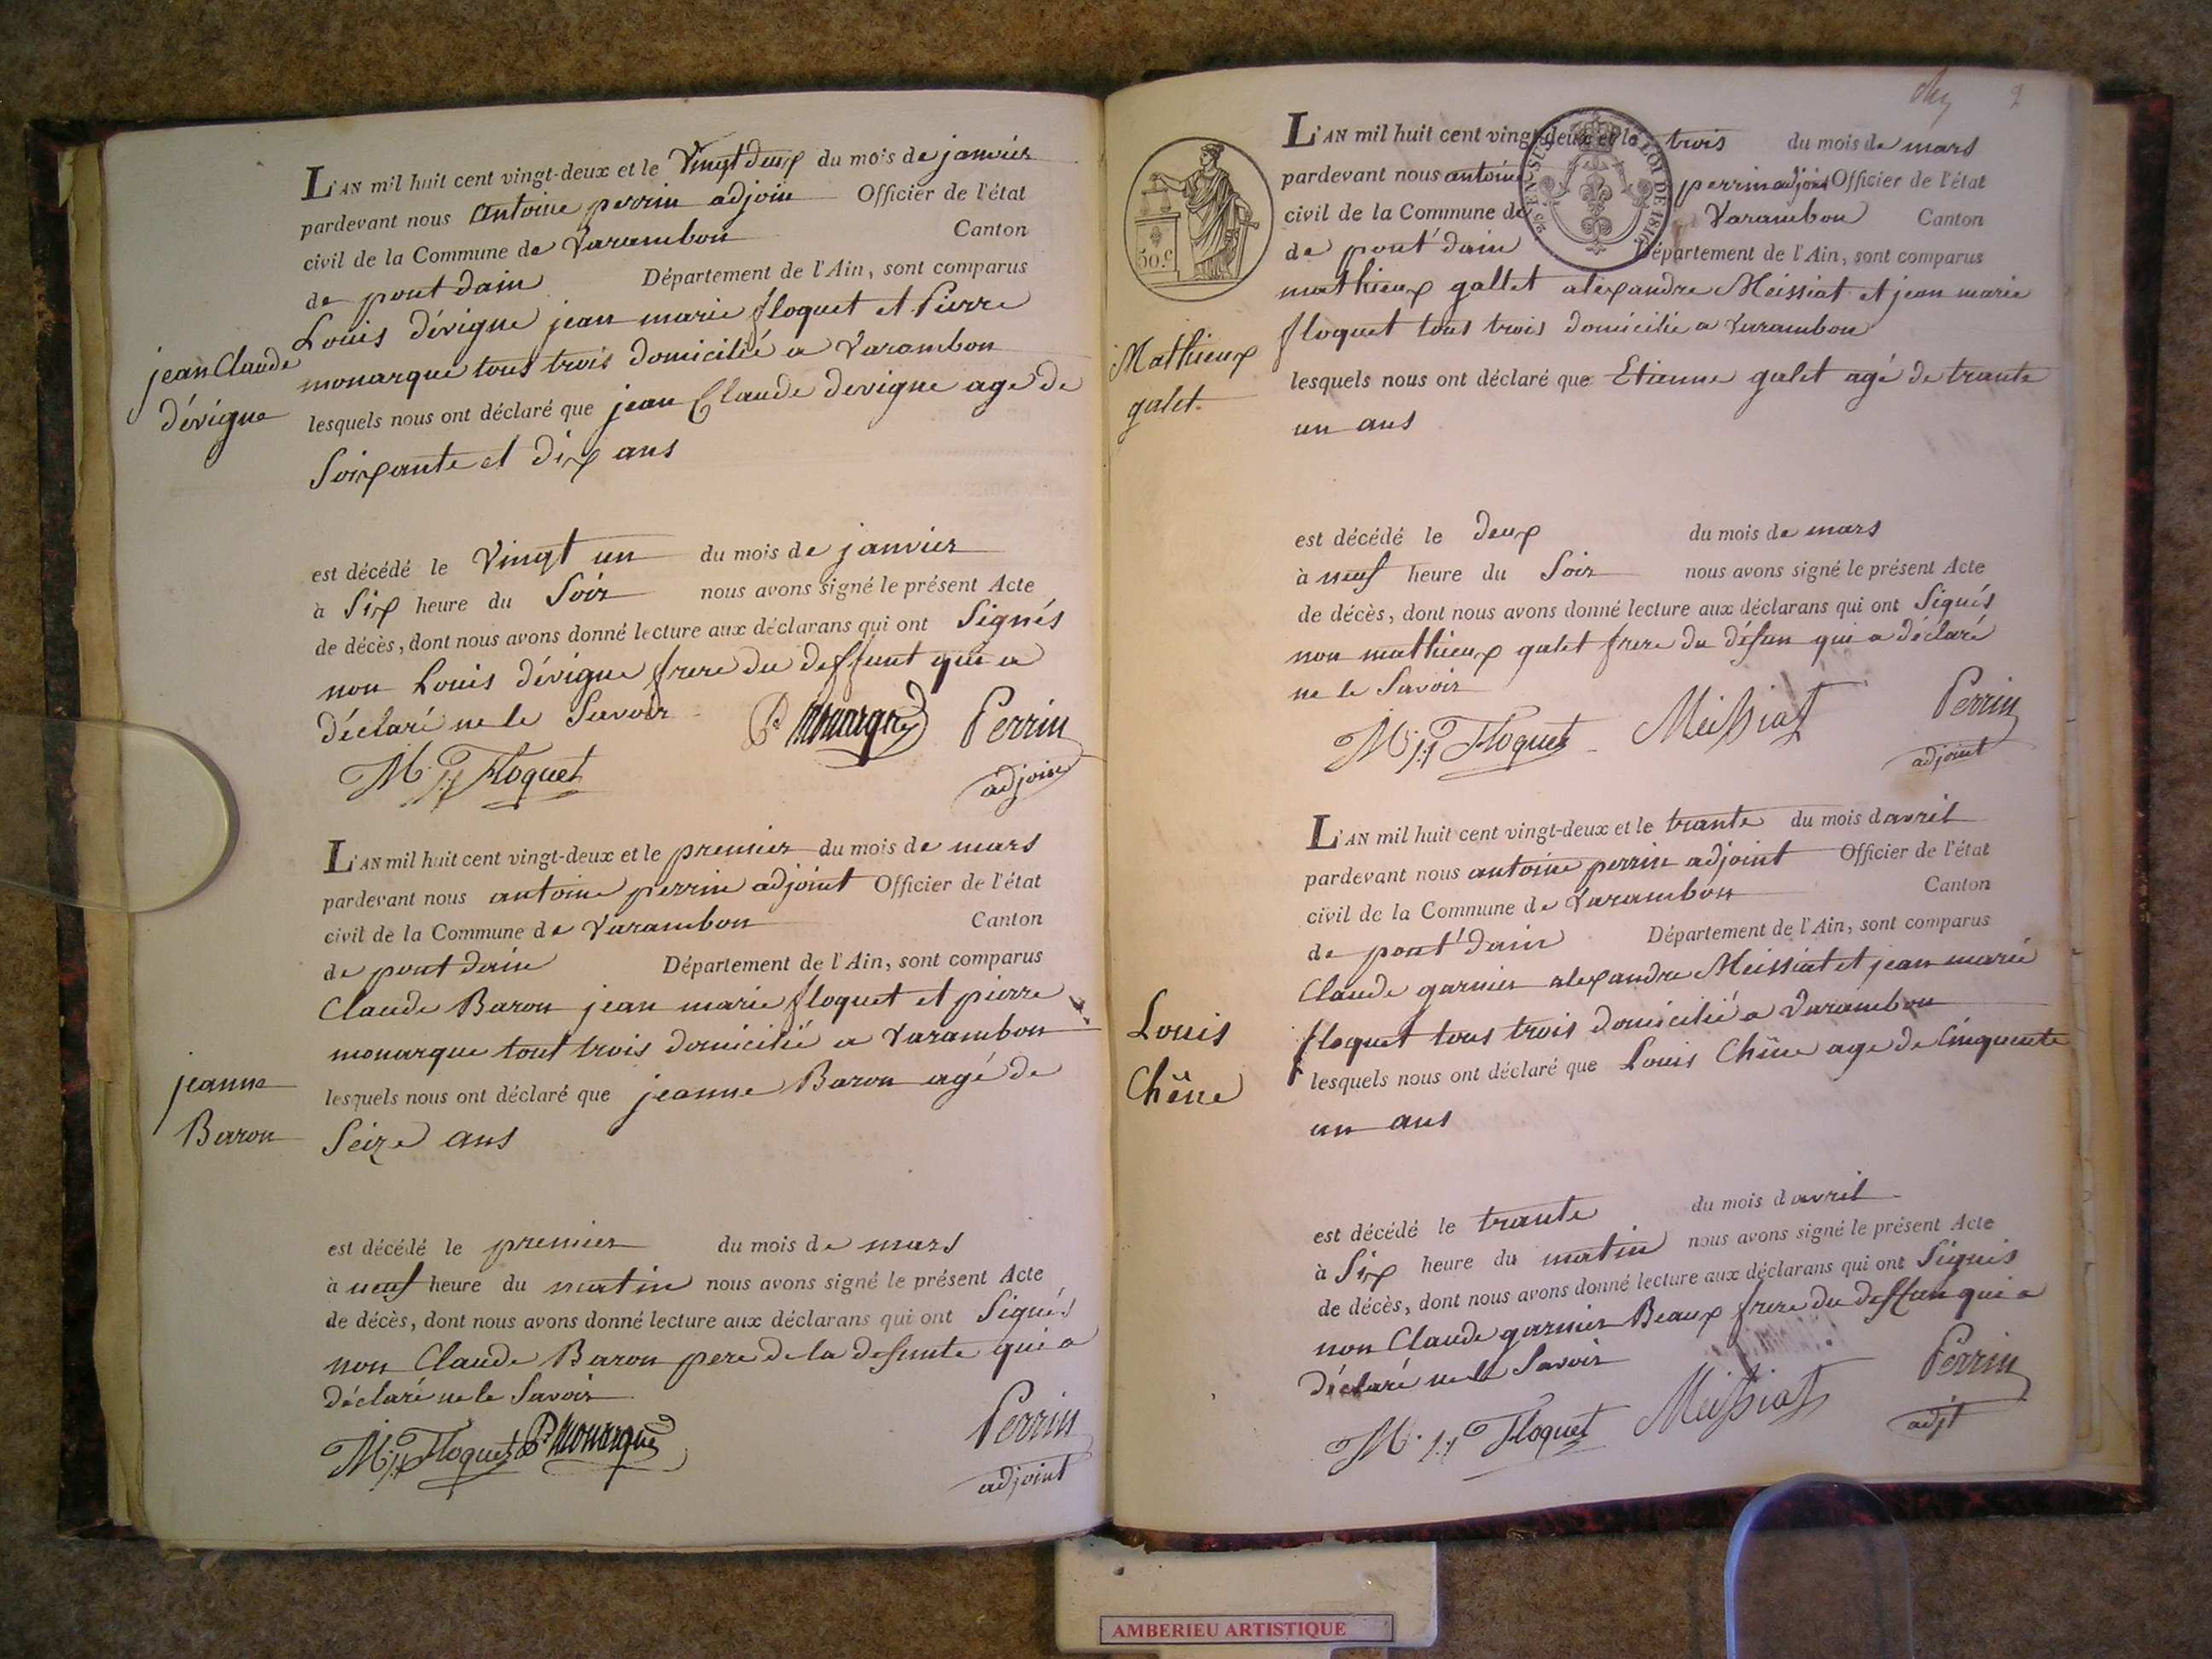 L'AN mil huit cent vingt-deux et le Vingt deux du mois de janvier
pardevant nous antoine perrin adjoin Officier de l'état
civil de la Commune de Varambon Canton
de pont dain Département de l'Ain, sont comparus
Louis dévigne jean marie floquet et Pierre
monarque tous trois domicilié a Varambon
jean Claude
dévigne
lesquels nous ont déclaré que jean Claude devigne age de
Soixante et dix ans
est décédé le Vingt un du mois de janvier
à Six heure du Soir nous avons signé le présent Acte
de décès, dont nous avons donné lecture aux déclarans qui ont Signés
non Louis dévigne frere du deffunt qui a
déclaré ne le Savoir
P. Monarque Perrin
adjoint
M. J. Floquet
L'AN mil huit cent vingt-deux et le premier du mois de mars
pardevant nous antoine perrin adjoint Officier de l'état
civil de la Commune de Varambon Canton
de pont dain Département de l'Ain, sont comparus
Claude Baron jean marie floquet et pierre
monarque tout trois domicilié a Varambon
jeanne
Baron
lesquels nous ont déclaré que jeanne Baron agé de
Seize ans
est décédé le premier du mois de mars
à neuf heure du matin nous avons signé le présent Acte
de décès, dont nous avons donné lecture aux déclarans qui ont Signés
non Claude Baron pere de la defunte qui a
déclaré ne le Savoir
M. J. Floquet P. Monarque Perrin
adjoint
2
L'AN mil huit cent vingt-deux et le trois du mois de mars
pardevant nous antoine perrin adjoint Officier de l'état
civil de la Commune de Varambon Canton
de pont dain Département de l'Ain, sont comparus
mathieux gallet alexandre Meissiat et jean marie
floquet tous trois domicilié a Varambon
50.c
LOI DE 1816
Mathieux
galet.
lesquels nous ont déclaré que Etienne galet agé de trante
un ans
est décédé le deux du mois de mars
à neuf heure du Soir nous avons signé le présent Acte
de décès, dont nous avons donné lecture aux déclarans qui ont Signés
non mathieux galet frere du défun qui a déclaré
ne le Savoir
M. J. Floquet Meissiat Perrin
adjoint
L'AN mil huit cent vingt-deux et le trante du mois d avril
pardevant nous antoine perrin adjoint Officier de l'état
civil de la Commune de Varambon Canton
de pont dain Département de l'Ain, sont comparus
Claude garnier alexandre Meissiat et jean marie
floquet tous trois domicilié a Varambon
Louis
Chêne
lesquels nous ont déclaré que Louis Chêne age de Cinquente
un ans
est décédé le trante du mois d avril
à Six heure du matin nous avons signé le présent Acte
de décès, dont nous avons donné lecture aux déclarans qui ont Signés
non Claude garnier Beaux frere du deffun qui a
déclaré ne le Savoir
M. J. Floquet Meissiat Perrin
adjt
AMBERIEU ARTISTIQUE